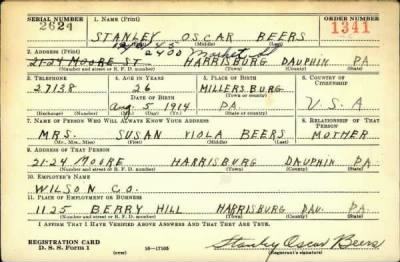 SERIAL NUMBER 1. NAME (Print) ORDER NUMBER
2624 STANLEY OSCAR BEERS 1341
(First) (Middle) (Last)
2. ADDRESS (Print) 2400 Market St
21-24 MOORE ST. HARRISBURG DAUPHIN PA
(Number and street or R. F. D. number) (Town) (County) (State)
3. TELEPHONE 4. AGE IN YEARS 5. PLACE OF BIRTH 6. COUNTRY OF CITIZENSHIP
27138 26 MILLERSBURG
DATE OF BIRTH (Town or county)
Aug 5 1914 PA U.S.A
(Exchange) (Number) (Mo.) (Day) (Yr.) (State or country)
7. NAME OF PERSON WHO WILL ALWAYS KNOW YOUR ADDRESS 8. RELATIONSHIP OF THAT PERSON
MRS. SUSAN VIOLA BEERS MOTHER
(Mr., Mrs., Miss) (First) (Middle) (Last)
9. ADDRESS OF THAT PERSON
21-24 MOORE HARRISBURG DAUPHIN PA.
(Number and street or R. F. D. number) (Town) (County) (State)
10. EMPLOYER'S NAME
WILSON CO.
11. PLACE OF EMPLOYMENT OR BUSINESS
1125 BERRY HILL HARRISBURG DAU. PA
(Number and street or R. F. D. number) (Town) (County) (State)
I AFFIRM THAT I HAVE VERIFIED ABOVE ANSWERS AND THAT THEY ARE TRUE.
REGISTRATION CARD
D. S. S. Form 1 (over) 16—17105 Stanley Oscar Beers
(Registrant's signature)